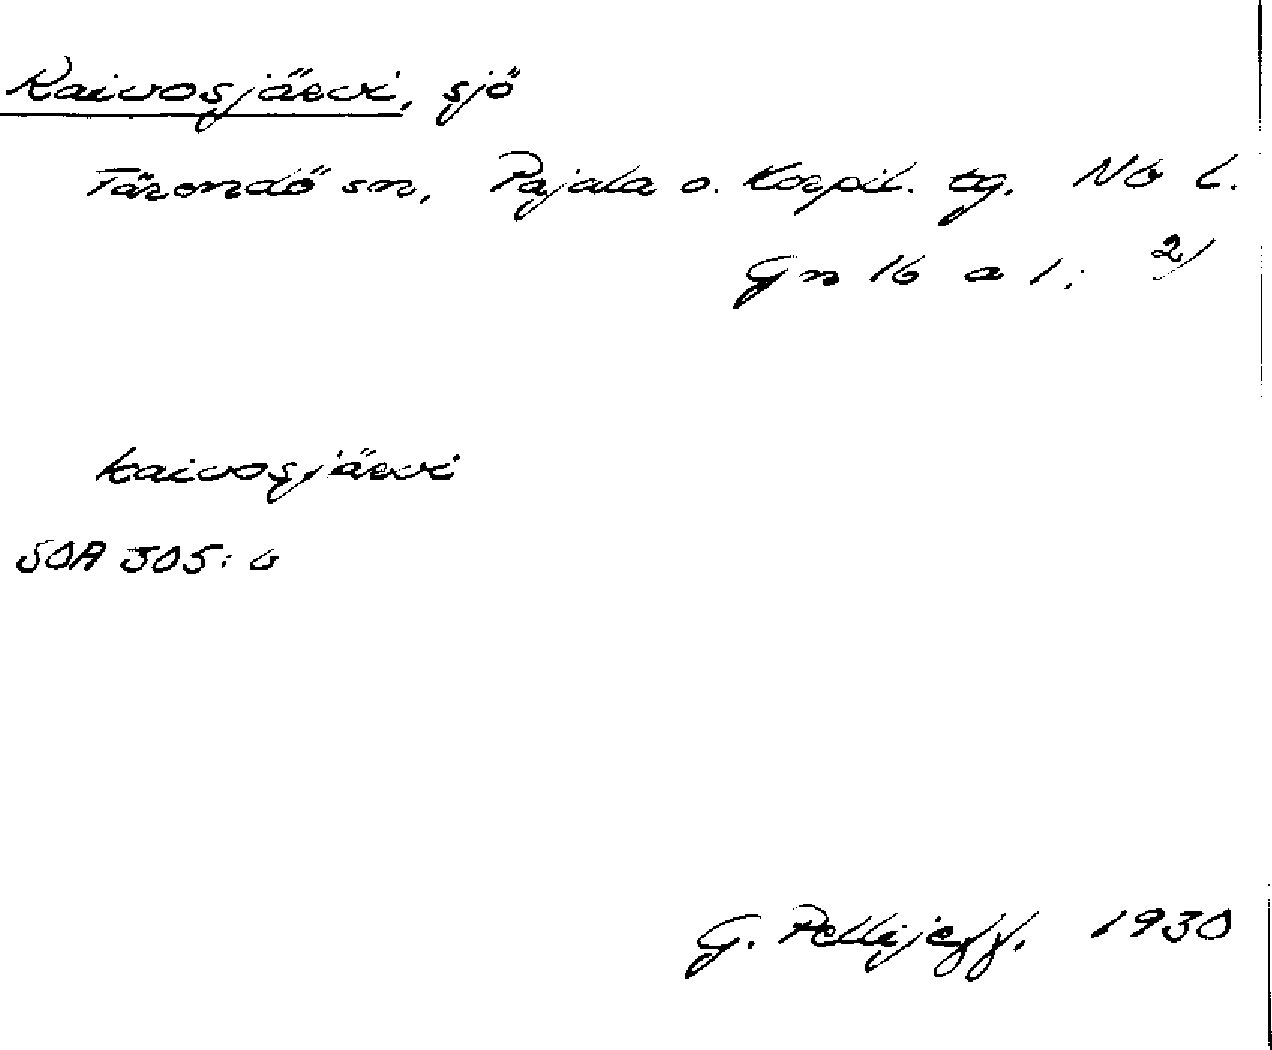 Kaivosjärvi, sjö
Tärendö sn, Pajala o. Korpil. tg. Nb l.
Gn 16 a 1; 2/
kaivosjärvi
SOA 305: b
G. Pellijeff. 1930